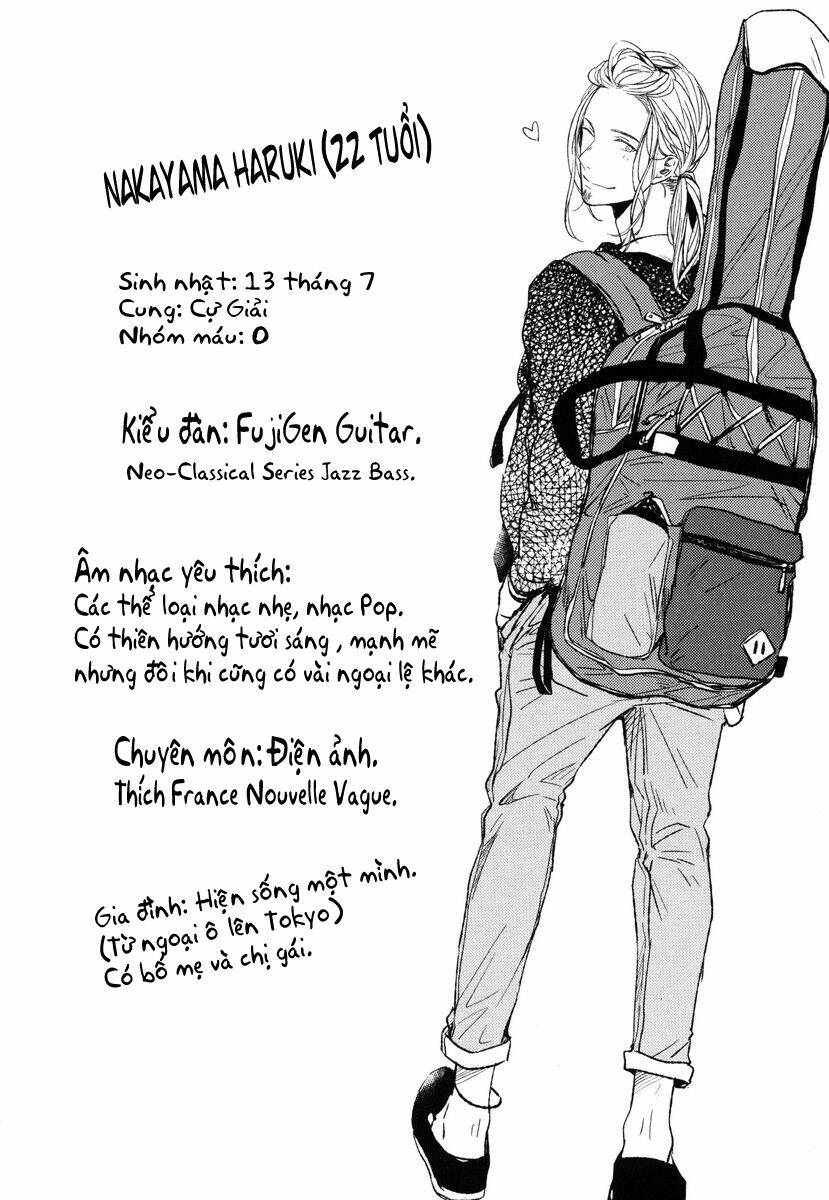 NAKAYAMA HARUKI (22 TUỔI)
Sinh nhật: 13 tháng 7
Cung: Cự Giải
Nhóm máu: O
Kiểu đàn: FujiGen Guitar.
Neo-Classical Series Jazz Bass.
Âm nhạc yêu thích:
Các thể loại nhạc nhẹ, nhạc Pop.
Có thiên hướng tươi sáng , mạnh mẽ
nhưng đôi khi cũng có vài ngoại lệ khác.
Chuyên môn: Điện ảnh.
Thích France Nouvelle Vague.
Gia đình: Hiện sống một mình.
(Từ ngoại ô lên Tokyo)
Có bố mẹ và chị gái.